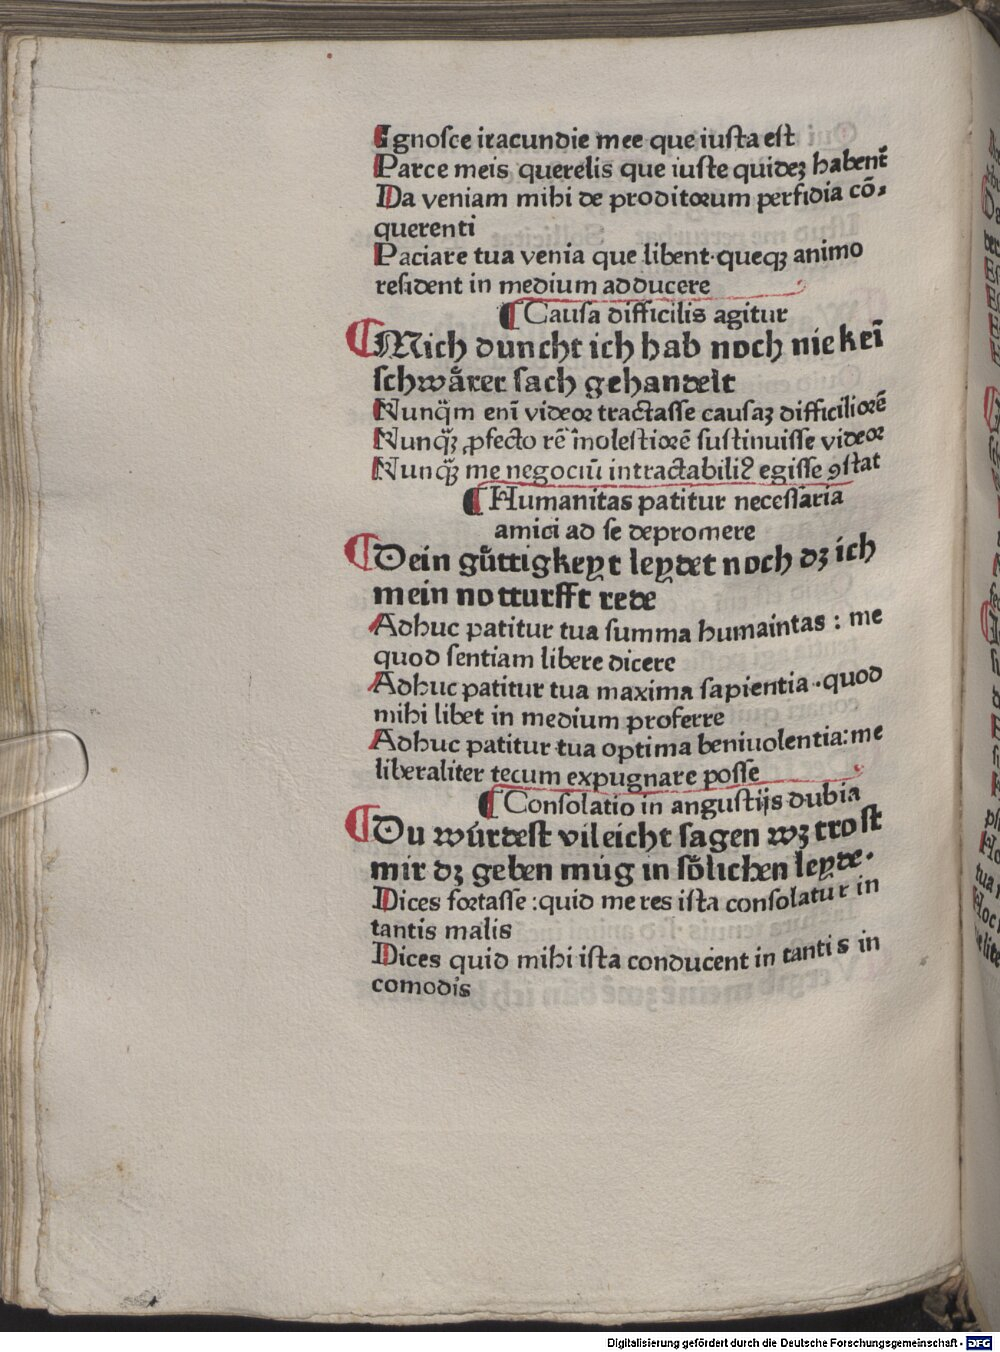 Ignosce iracundie mee que iusta est
Parce meis querelis que iuste quideʒ habent᷑
Da veniam mihi de proditorum perfidia cō⸗
querenti
Paciare tua venia que libent·queqʒ animo
resident in medium adducere
¶ Causa difficilis agitur
¶ Mich duncht ich hab noch nie keī
schwaͤrer sach gehandelt
Nunq̈m enī videor tractasse causaʒ difficiliorē
Nunq̈ʒ ꝓfecto rē molestiorē sustinuisse videor
Nunq̈ʒ me negociū intractabiliꝰ egisse ꝯstat
¶ Humanitas patitur necessaria
amici ad se depromere
¶ Dein guͤttigkeyt leydet noch dʒ ich
mein notturfft rede
Adhuc patitur tua summa humaintas : me
quod sentiam libere dicere
Adhuc patitur tua maxima sapientia ·quod
mihi libet in medium proferre
Adhuc patitur tua optima beniuolentia:me
liberaliter tecum expugnare posse
¶ Consolatio in angustijs dubia
¶ Du wuͤrdest vileicht sagen wʒ trost
mir dʒ geben mug in soͤlichen leyde·
Dices fortasse :quid me res ista consolatur in
tantis malis
Dices quid mihi ista conducent in tantis in
comodis
Digitalisierung gefördert durch die Deutsche Forschungsgemeinschaft - DFG